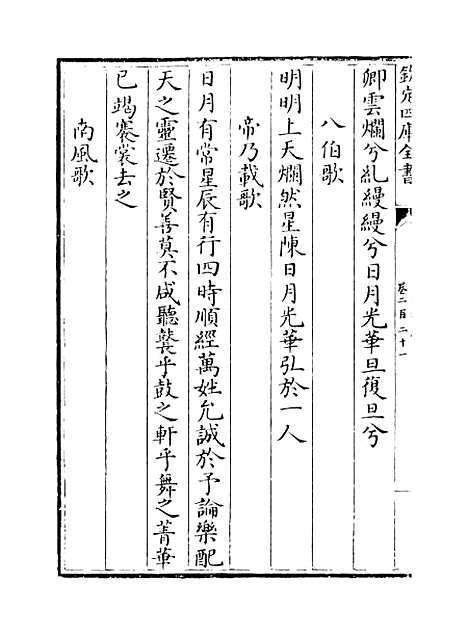 欽定四庫全書
卷二百二十一
卿雲爛兮糺縵縵兮日月光華旦復旦兮
八伯歌
明明上天爛然星陳日月光華弘於一人
帝乃載歌
日月有常星辰有行四時順經萬姓允誠於予論樂配
天之靈遷於賢善莫不咸聽鼚乎鼓之軒乎舞之菁華
已竭褰裳去之
南風歌